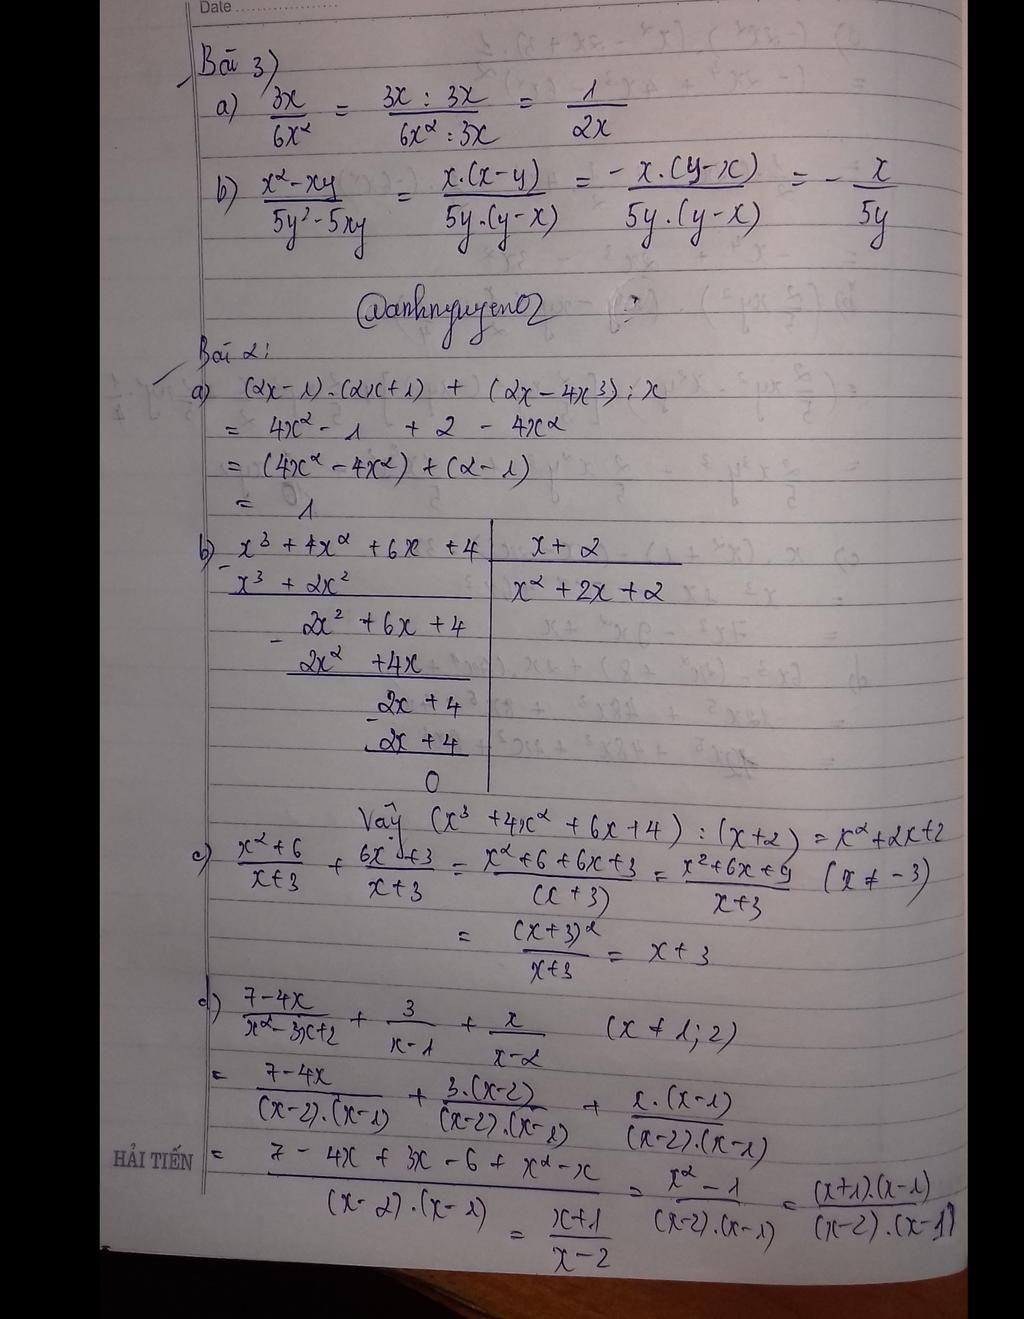 Date
Bài 3)
a) 3x/6x² = 3x : 3x/6x² : 3x = 1/2x
b) x² - xy/5y² - 5xy = x.(x-y)/5y.(y-x) = - x.(y-x)/5y.(y-x) = - x/5y
@anhnguyen02
Bài 2:
a) (2x-1).(2x+1) + (2x-4x³) : x
= 4x² - 1 + 2 - 4x²
= (4x² - 4x²) + (2-1)
= 1
b) x³ + 4x² + 6x + 4 | x + 2
- x³ + 2x² | x² + 2x + 2
2x² + 6x + 4
- 2x² + 4x
2x + 4
- 2x + 4
0
Vậy (x³ + 4x² + 6x + 4) : (x+2) = x² + 2x + 2
c) x²+6/x+3 + 6x+3/x+3 = x²+6+6x+3/(x+3) = x²+6x+9/x+3 (x ≠ -3)
= (x+3)²/x+3 = x + 3
d) 7-4x/x²-3x+2 + 3/x-1 + x/x-2 (x ≠ 1; 2)
= 7-4x/(x-2).(x-1) + 3.(x-2)/(x-2).(x-1) + x.(x-1)/(x-2).(x-1)
= 7 - 4x + 3x - 6 + x² - x/(x-2).(x-1) = x² - 1/(x-2).(x-1) = (x+1).(x-1)/(x-2).(x-1)
= x+1/x-2
HẢI TIẾN